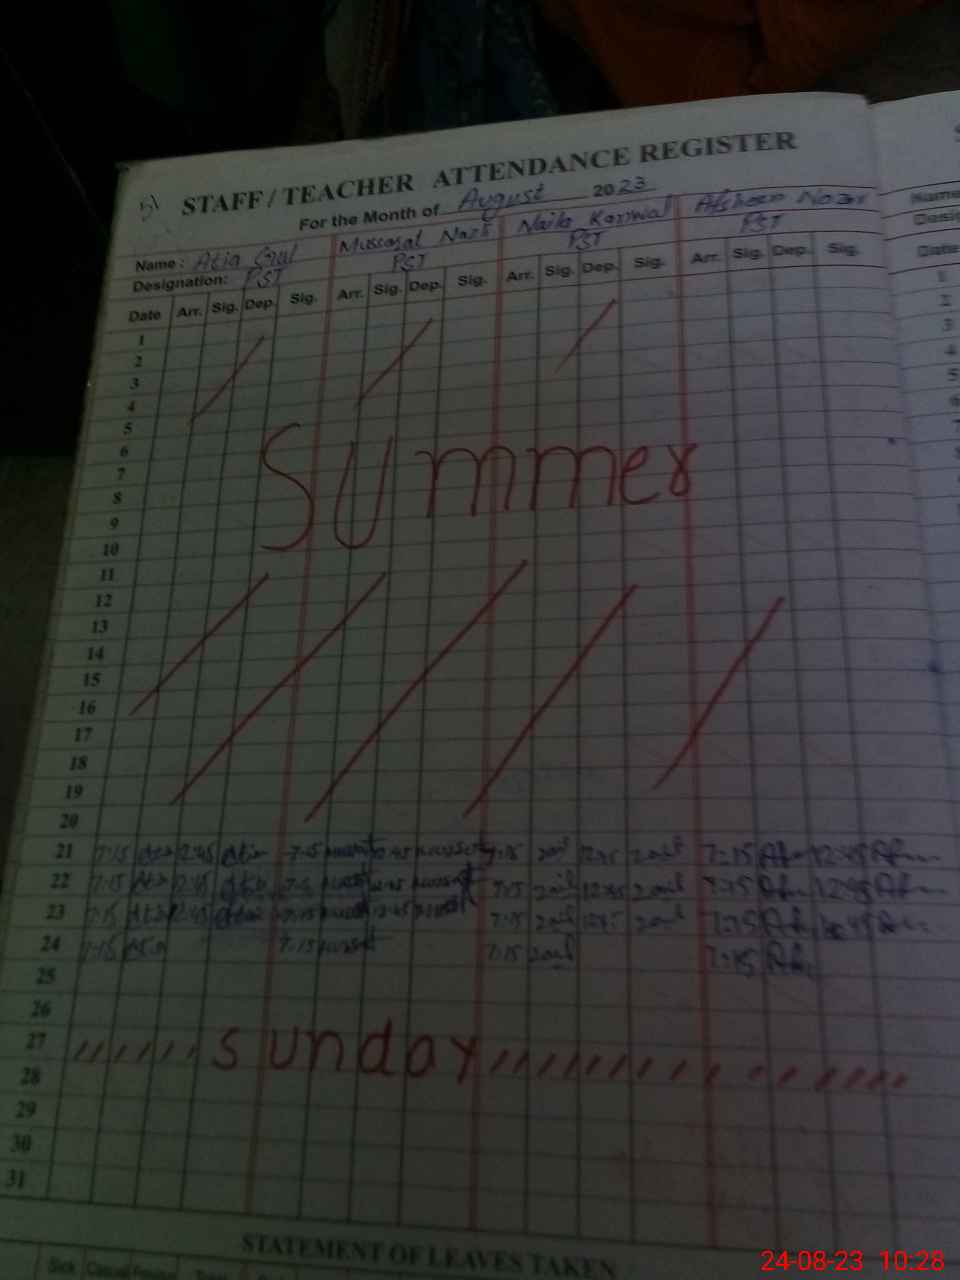 STAFF / TEACHER ATTENDANCE REGISTER
For the Month of August 2023
Name : Atia Gul Mussarat Nazli Naila Kanwal Afsheen Nazar
Designation: PST PST PST PST
Date Arr. Sig. Dep. Sig. Arr. Sig. Dep. Sig. Arr. Sig. Dep. Sig. Arr. Sig. Dep. Sig.
1
2
3
4
5
6
7
8
9
10
Summer
11
12
13
14
15
16
17
18
19
20
21 7:15 Atia 12:45 Atia 7:15 12:45 7:15 12:45 7:15 12:45
22 7:15 Atia 12:45 Atia 7:15 12:45 7:15 12:45 7:15 12:45
23 7:15 Atia 12:45 Atia 7:15 12:45 7:15 12:45 7:15 12:45
24 7:15 Atia 7:15 7:15 7:15
25
26
27 Sunday
28
29
30
31
STATEMENT OF LEAVES TAKEN
Sick Casual
Name
Date
1
2
3
4
5
6
24-08-23 10:28